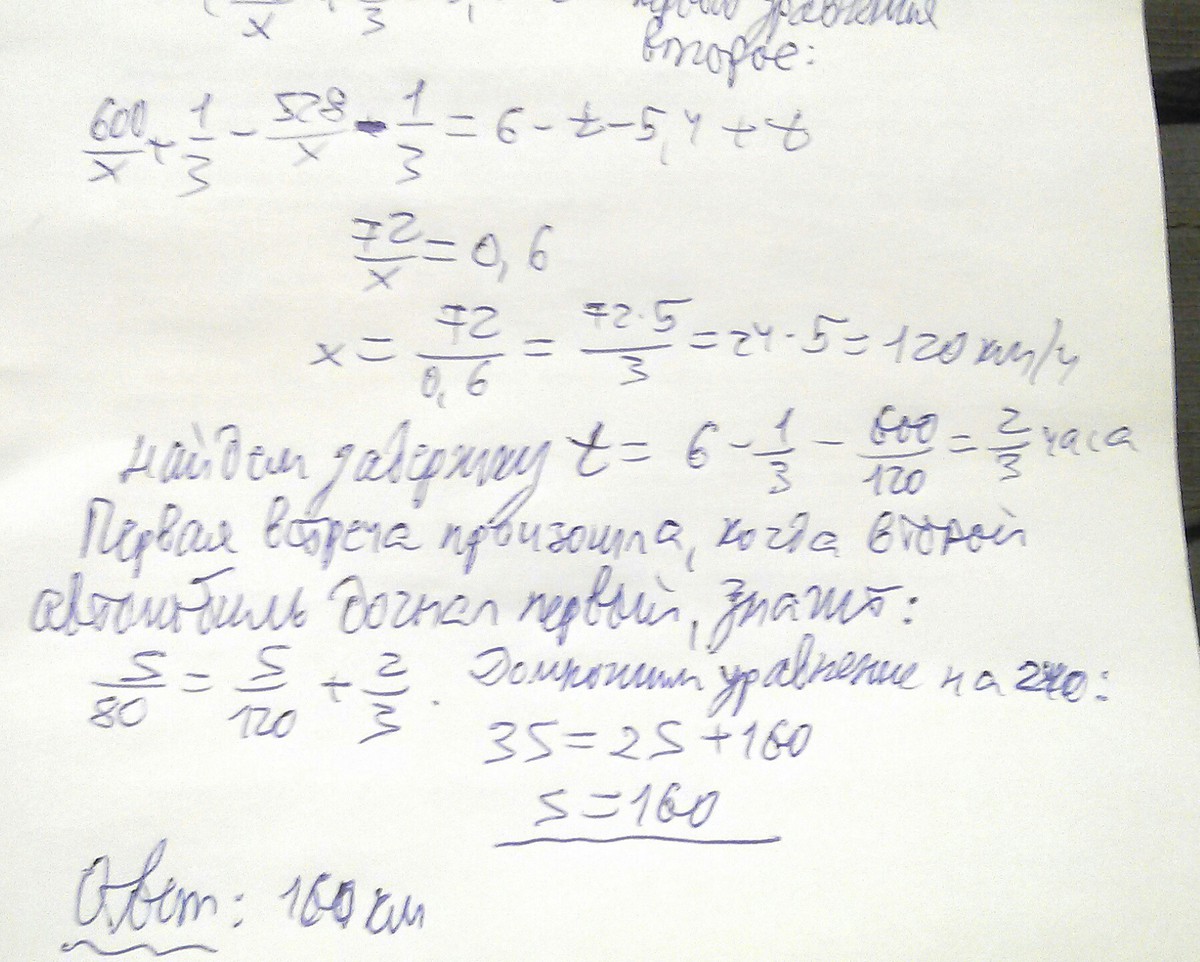 x 3 уравнения
второе:
600/x + 1/3 - 528/x - 1/3 = 6 - t - 5,4 + t
72/x = 0,6
x = 72/0,6 = 72·5/3 = 24·5 = 120 км/ч
Найдем задержку t = 6 - 1/3 - 600/120 = 2/3 часа
Первая встреча произошла, когда второй
автомобиль догнал первый, значит:
S/80 = S/120 + 2/3. Домножим уравнение на 240:
3S = 2S + 160
S = 160
Ответ: 160 км